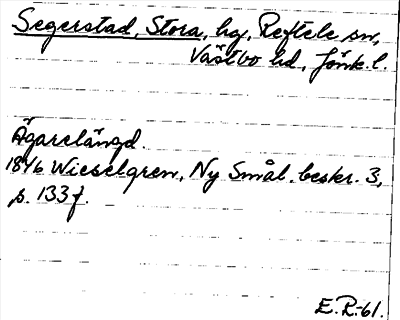 Segerstad, Stora, hg, Reftele sn,
Västbo hd, Jönk. l.
Ägarelängd.
1846 Wieselgren, Ny Smål. beskr. 3,
s. 133 f.
E.R-61.